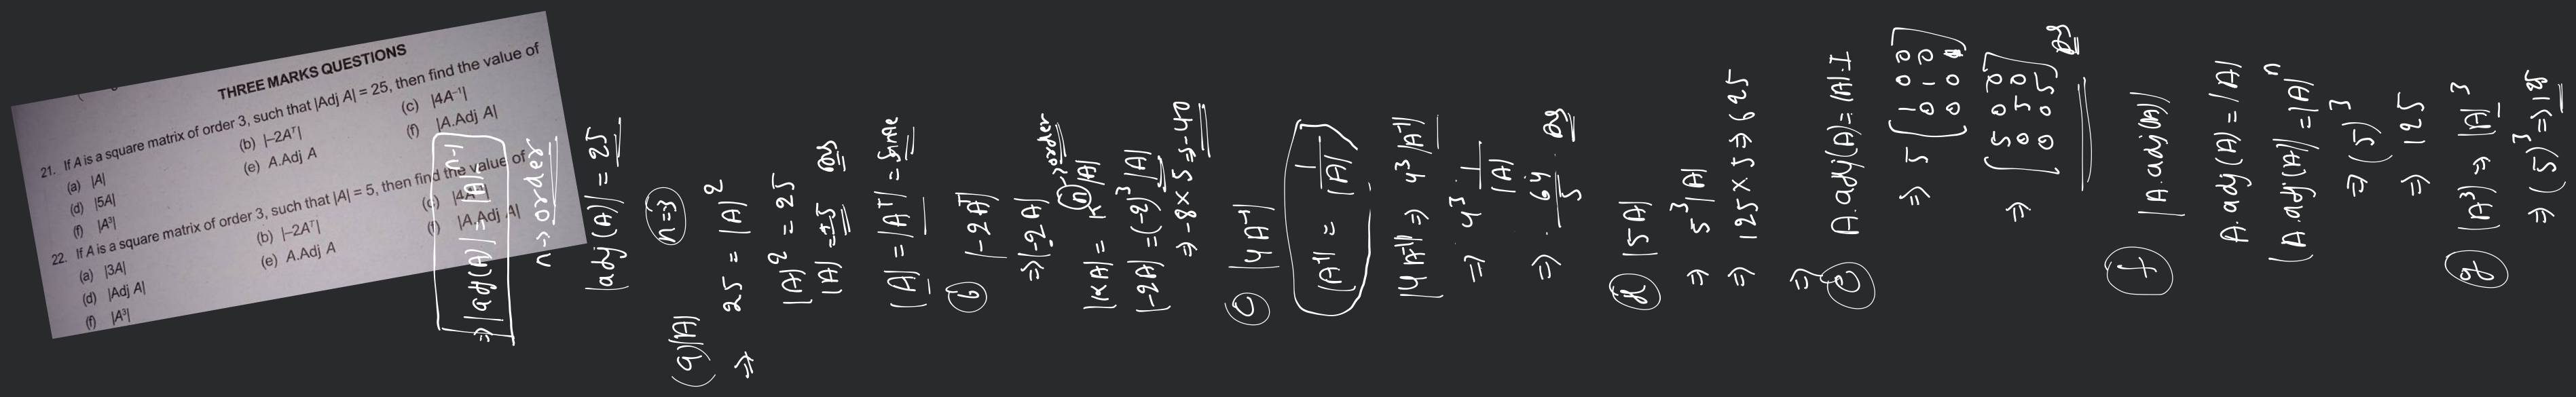 THREE MARKS QUESTIONS
21. If A is a square matrix of order 3, such that |Adj A| = 25, then find the value of
(a) |A| (b) |–2Aᵀ| (c) |4A⁻¹|
(d) |5A| (e) A.Adj A (f) |A.Adj A|
(f) |A³|
22. If A is a square matrix of order 3, such that |A| = 5, then find the value of
(a) |3A| (b) |–2Aᵀ| (c) |4A⁻¹|
(d) |Adj A| (e) A.Adj A (f) |A.Adj A|
(f) |A³|
⇒ |adj(A)| = |A|ⁿ⁻¹
n → order
|adj(A)| = 25
n=3
(a) |A|
⇒ 25 = |A|²
|A|² = 25
|A| = ±5 Ans
|A| = |Aᵀ| = same
(b) |-2Aᵀ|
⇒ |-2A|
|KA| = Kⁿ|A| → order
|-2A| = (-2)³|A|
⇒ -8 × 5 ⇒ -40
(c) |4A⁻¹|
|A⁻¹| = 1/|A|
|4A⁻¹| ⇒ 4³|A⁻¹|
⇒ 4³ · 1/|A|
⇒ 64/5 Ans
(d) |5A|
⇒ 5³|A|
⇒ 125 × 5 ⇒ 625
⇒
(e) A.adj(A) = |A|.I
⇒ 5 [1 0 0
0 1 0
0 0 1]
⇒ [5 0 0
0 5 0
0 0 5] Ans
(f) |A.adj(A)|
A.adj(A) = |A|
|A.adj(A)| = |A|ⁿ
⇒ (5)³
⇒ 125
(g) |A³| ⇒ |A|³
⇒ (5)³ ⇒ 125